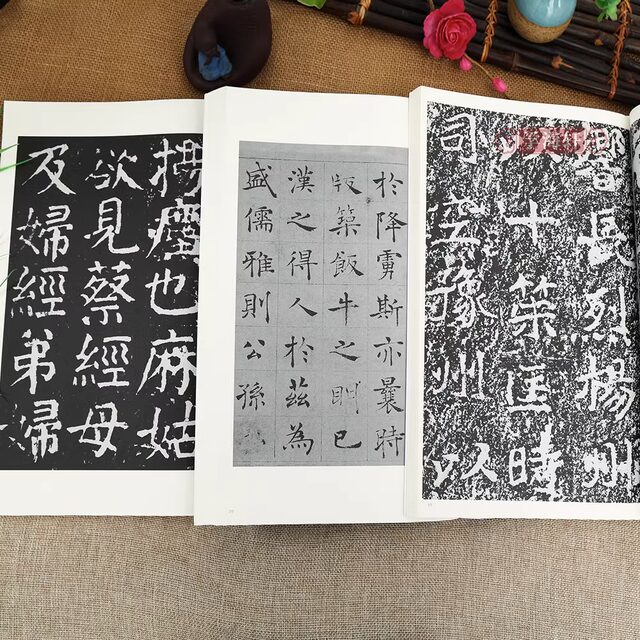 揚塵也麻姑
欲見蔡經母
及婦經弟婦
於降虜斯亦曩時
版築飯牛之朋已
漢之得人於茲為
盛儒雅則公孫
長烈揚州
十策匡時
司空豫州以